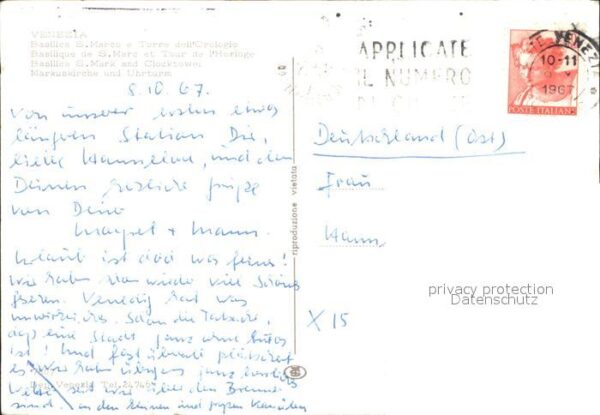 VENEZIA
Basilica S. Marco e Torre dell'Orologio
Basilique de S. Marc et Tour de l'Horloge
Basilica S. Mark and Clocktower
Markuskirche und Uhrturm
APPLICATE
IL NUMERO
VENEZIA
10-11
1967
POSTE ITALIANE
8.10.67.
Von unserer ersten etwas
längeren Station Dir,
liebe Hannelore, und den
Deinen herzliche Grüße
von Deine
+ Mann.
Urlaub ist doch was feines!
Wir haben schon wieder viel Schönes
gesehen. Venedig hat was
unwirkliches. Schon die Tatsache,
daß eine Stadt ganz ohne Autos
ist! Und fast überall plätschert
es. Wir haben übrigens ganz herrliches
seit wir über den Brenner
sind. in den kleinen und großen Kanälen
Venezia Tel.
riproduzione vietata
Deutschland (Ost)
Frau
Hann
X 15
privacy protection
Datenschutz